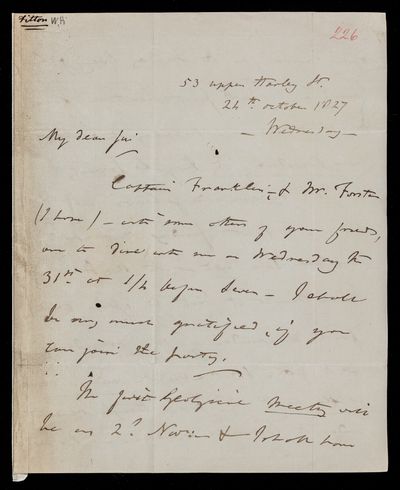 Fitton W.H
226
53 upper Harley St.
24th October 1827
- Wednesday -
My dear Sir
Captain Franklin, & Mr. Forster
(I hope) - with some others of your friends,
are to dine with me on Wednesday the
31st at 1/4 before Seven - I shall
be very much gratified, if you
can join the party.
The first Geological Meeting will
be on 2d Novr. & I shall have